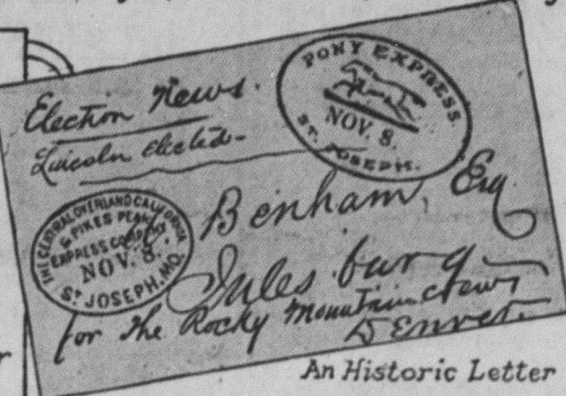 Election News.
Lincoln elected-
PONY EXPRESS.
NOV. 8.
ST. JOSEPH.
THE CENTRAL OVERLAND CALIFORNIA
& PIKES PEAK
EXPRESS COMPANY
NOV. 8.
ST. JOSEPH, MO.
Benham, Esq
Julesburg
for the Rocky Mountain News
Denver.
An Historic Letter